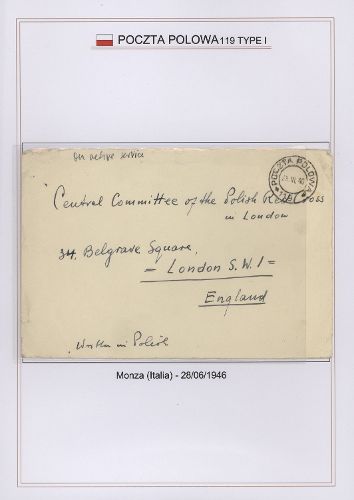 POCZTA POLOWA 119 TYPE I
On active service
POCZTA POLOWA
VI. 46
Central Committee of the Polish Red Cross
in London
34, Belgrave Square,
- London S.W.1 =
England
"Written in Polish
Monza (Italia) - 28/06/1946